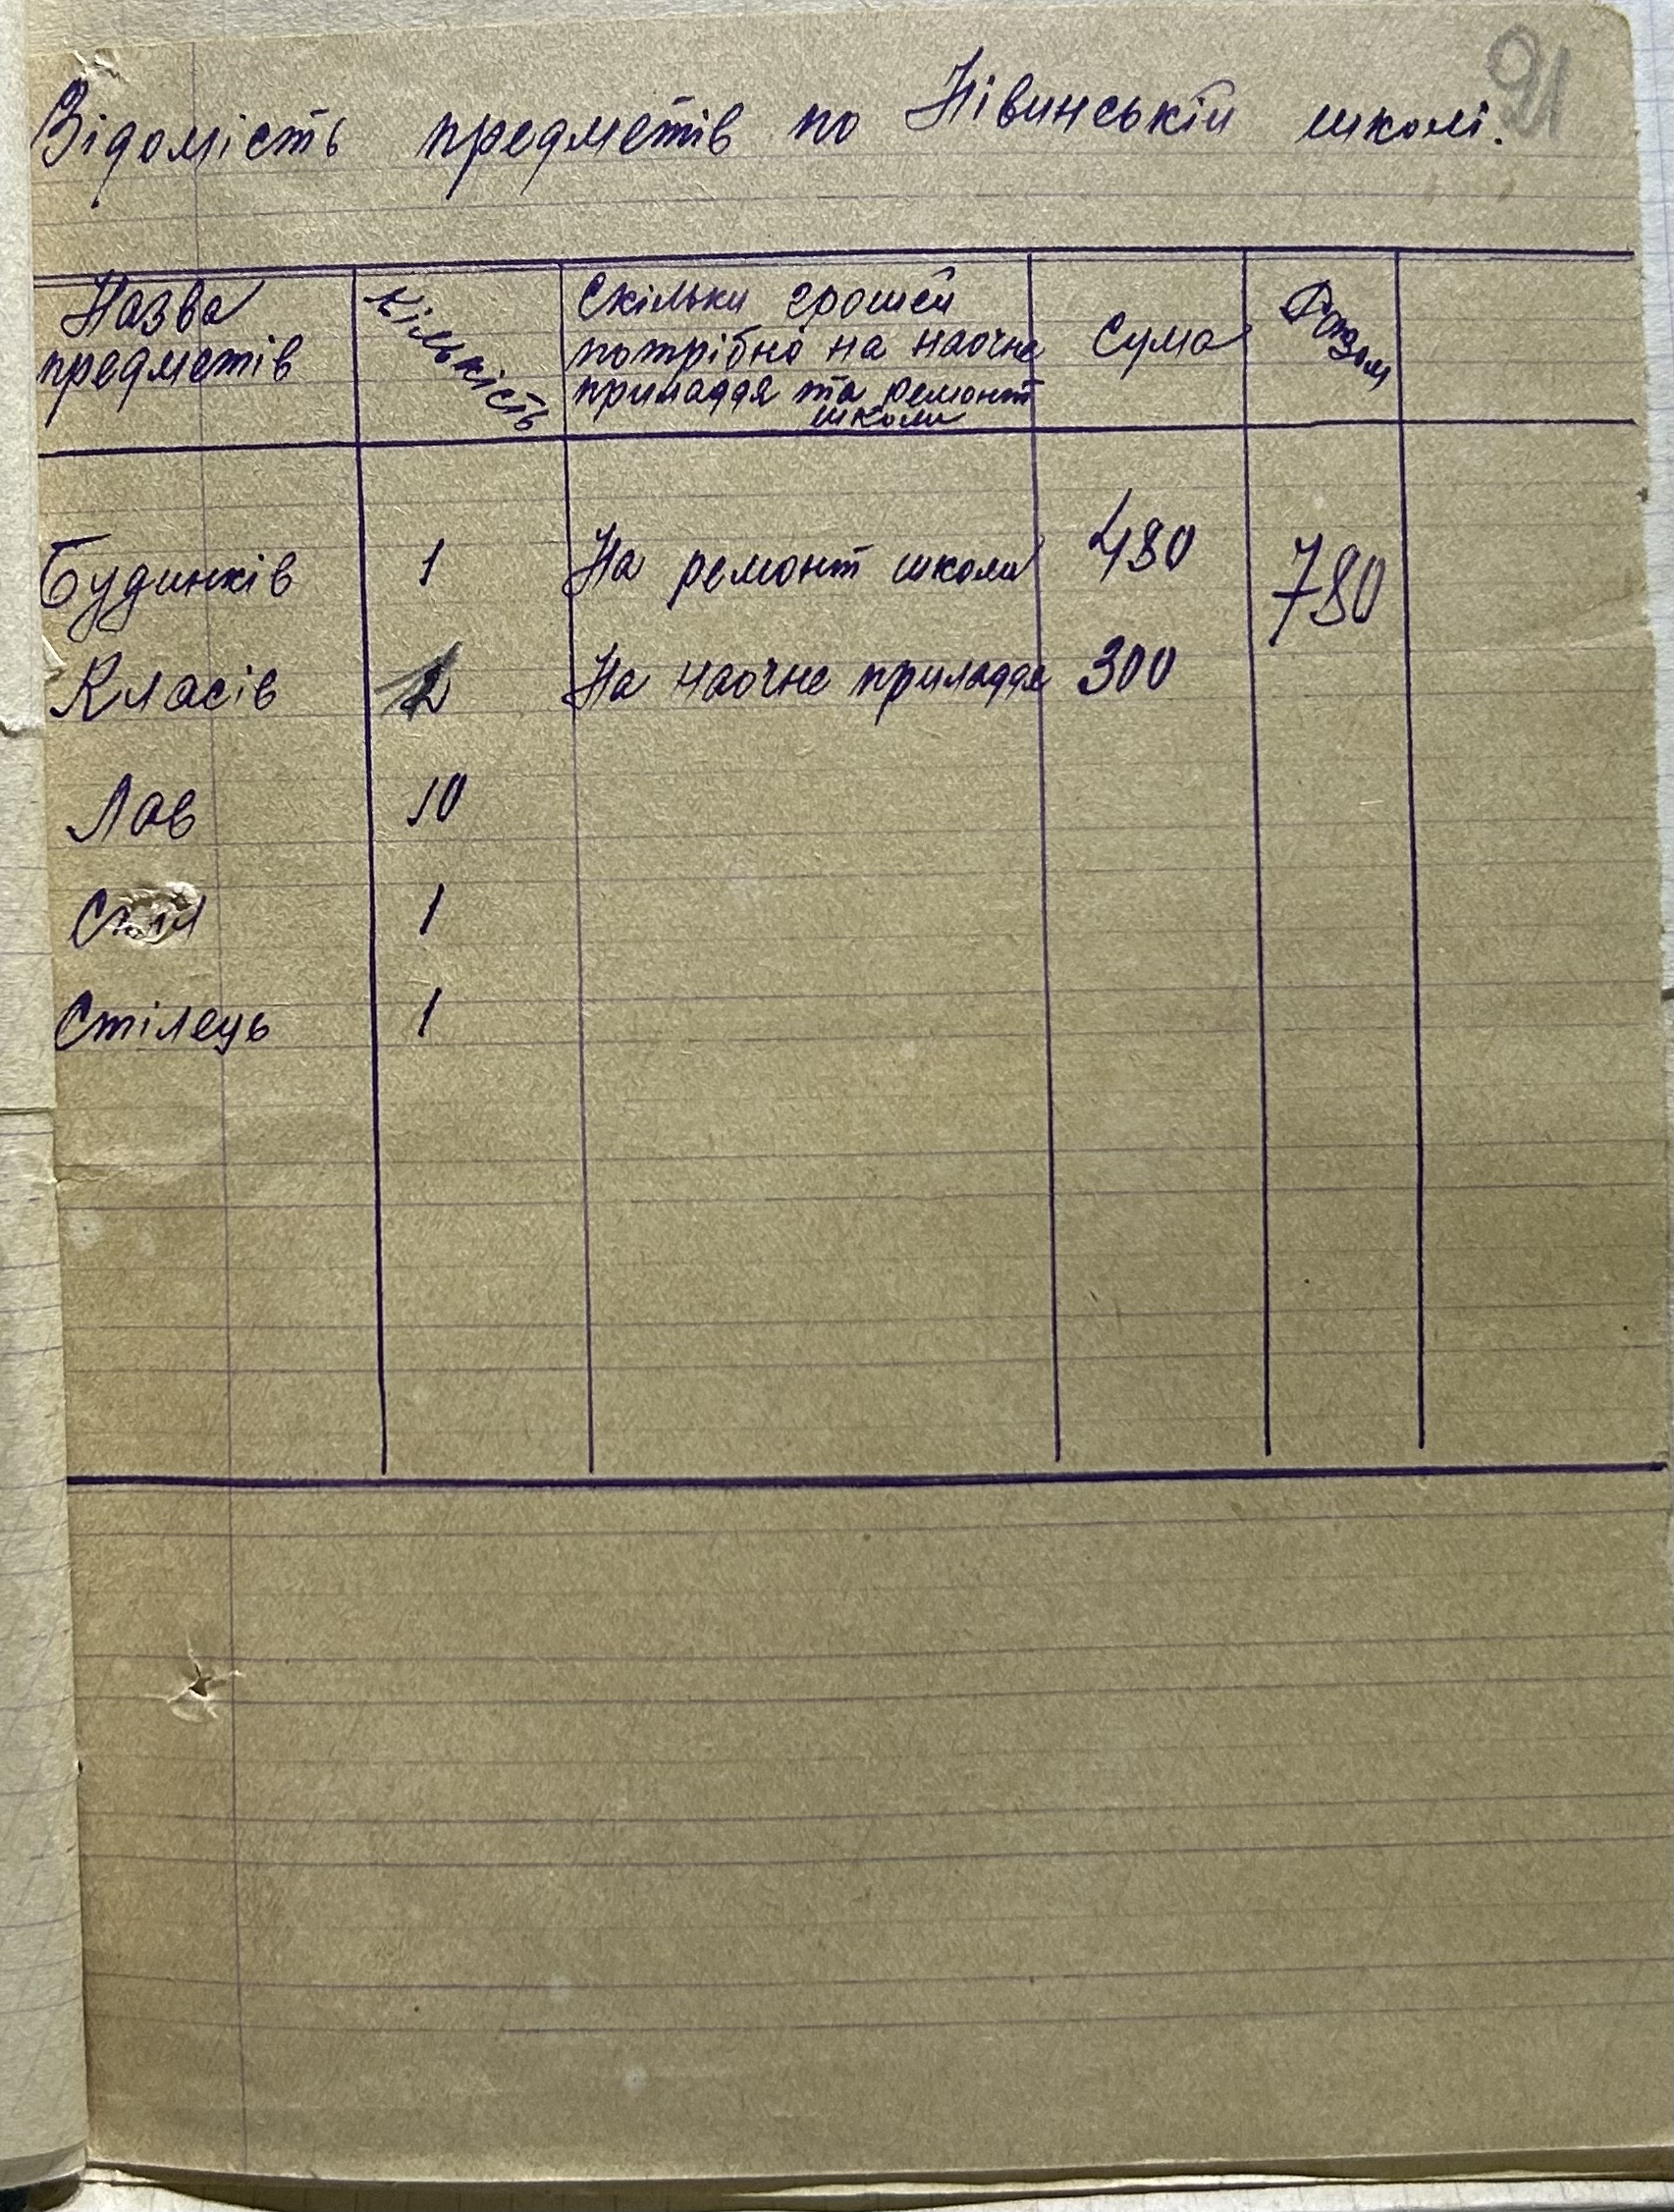 91
Відомість предметів по Нівинській школі.
Назва предметів Кількість Скільки грошей потрібно на наочне приладдя та ремонт школи Сума Разом
Будинків 1 На ремонт школи 480 780
Класів 2 На наочне приладдя 300
Лав 10
Стіл 1
Стілець 1